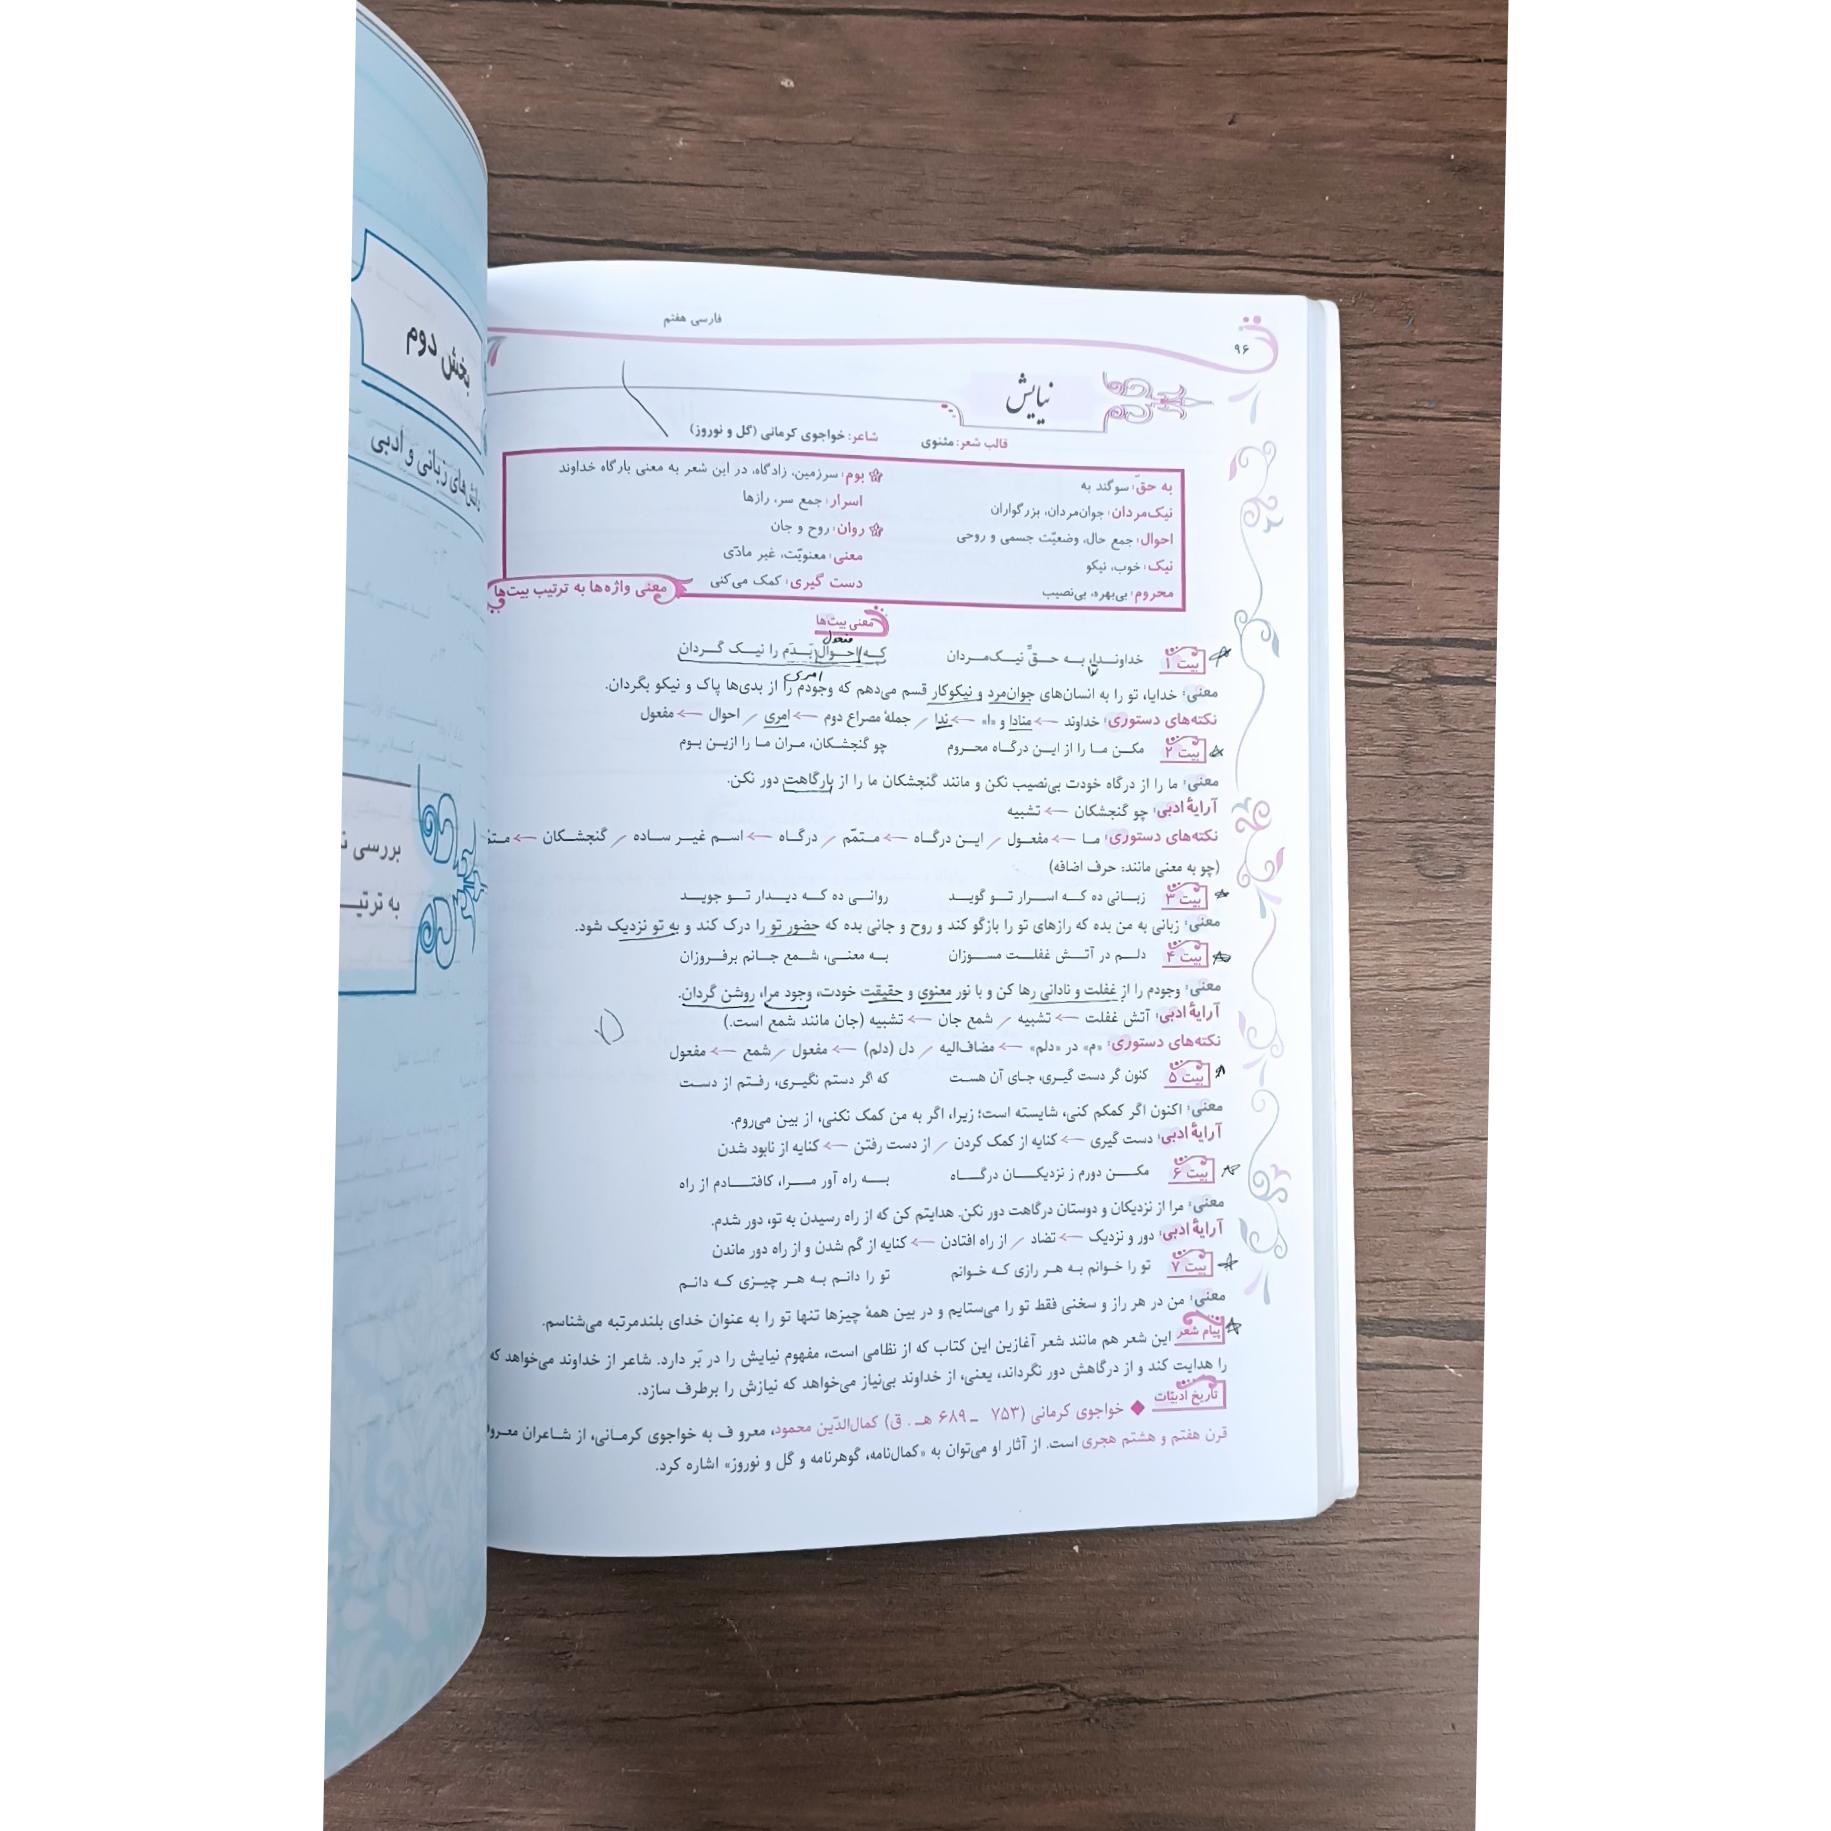 فارسی هفتم
۹۶
نیایش
قالب شعر: مثنوی شاعر: خواجوی کرمانی (گل و نوروز)
به حقّ: سوگند به
نیک‌مردان: جوان‌مردان، بزرگواران
احوال: جمع حال، وضعیّت جسمی و روحی
نیک: خوب، نیکو
محروم: بی‌بهره، بی‌نصیب
بوم: سرزمین، زادگاه، در این شعر به معنی بارگاه خداوند
اسرار: جمع سر، رازها
روان: روح و جان
معنی: معنویّت، غیر مادّی
دست گیری: کمک می‌کنی
معنی واژه‌ها به ترتیب بیت‌ها
معنی بیت‌ها
مفعول
بیت ۱ خداوندا، به حقِّ نیک‌مردان که احوال بَدَم را نیک گردان
امری
معنی: خدایا، تو را به انسان‌های جوان‌مرد و نیکوکار قسم می‌دهم که وجودم را از بدی‌ها پاک و نیکو بگردان.
نکته‌های دستوری: خداوند ← منادا و «ا» ← ندا / جملهٔ مصراع دوم ← امری / احوال ← مفعول
بیت ۲ مکن ما را از این درگاه محروم چو گنجشکان، مران ما را ازین بوم
معنی: ما را از درگاه خودت بی‌نصیب نکن و مانند گنجشکان ما را از بارگاهت دور نکن.
آرایهٔ ادبی: چو گنجشکان ← تشبیه
نکته‌های دستوری: ما ← مفعول / این درگاه ← متمّم / درگاه ← اسم غیر ساده / گنجشکان ←
(چو به معنی مانند: حرف اضافه)
بیت ۳ زبانی ده که اسرار تو گوید روانی ده که دیدار تو جوید
معنی: زبانی به من بده که رازهای تو را بازگو کند و روح و جانی بده که حضور تو را درک کند و به تو نزدیک شود.
بیت ۴ دلم در آتش غفلت مسوزان به معنی، شمع جانم برفروزان
معنی: وجودم را از غفلت و نادانی رها کن و با نور معنوی و حقیقت خودت، وجود مرا، روشن گردان.
آرایهٔ ادبی: آتش غفلت ← تشبیه / شمع جان ← تشبیه (جان مانند شمع است.)
نکته‌های دستوری: «م» در «دلم» ← مضاف‌الیه / دل (دلم) ← مفعول / شمع ← مفعول
بیت ۵ کنون گر دست گیری، جای آن هست که اگر دستم نگیری، رفتم از دست
معنی: اکنون اگر کمکم کنی، شایسته است؛ زیرا، اگر به من کمک نکنی، از بین می‌روم.
آرایهٔ ادبی: دست گیری ← کنایه از کمک کردن / از دست رفتن ← کنایه از نابود شدن
بیت ۶ مکن دورم ز نزدیکان درگاه به راه آور مرا، کافتادم از راه
معنی: مرا از نزدیکان و دوستان درگاهت دور نکن. هدایتم کن که از راه رسیدن به تو، دور شدم.
آرایهٔ ادبی: دور و نزدیک ← تضاد / از راه افتادن ← کنایه از گم شدن و از راه دور ماندن
بیت ۷ تو را خوانم به هر رازی که خوانم تو را دانم به هر چیزی که دانم
معنی: من در هر راز و سخنی فقط تو را می‌ستایم و در بین همهٔ چیزها تنها تو را به عنوان خدای بلندمرتبه می‌شناسم.
پیام شعر این شعر هم مانند شعر آغازین این کتاب که از نظامی است، مفهوم نیایش را در بَر دارد. شاعر از خداوند می‌خواهد که
را هدایت کند و از درگاهش دور نگرداند، یعنی، از خداوند بی‌نیاز می‌خواهد که نیازش را برطرف سازد.
تاریخ ادبیّات
◆ خواجوی کرمانی (۷۵۳ ـ ۶۸۹ هـ . ق) کمال‌الدّین محمود، معروف به خواجوی کرمانی، از شاعران
قرن هفتم و هشتم هجری است. از آثار او می‌توان به «کمال‌نامه، گوهرنامه و گل و نوروز» اشاره کرد.
بخش دوم
های زبانی و ادبی
بررسی
به